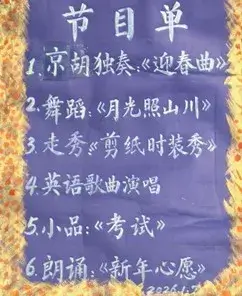 节目单
1.京胡独奏:《迎春曲》
2.舞蹈:《月光照山川》
3.走秀:《剪纸时装秀》
4.英语歌曲演唱
5.小品:《考试》
6.朗诵:《新年心愿》